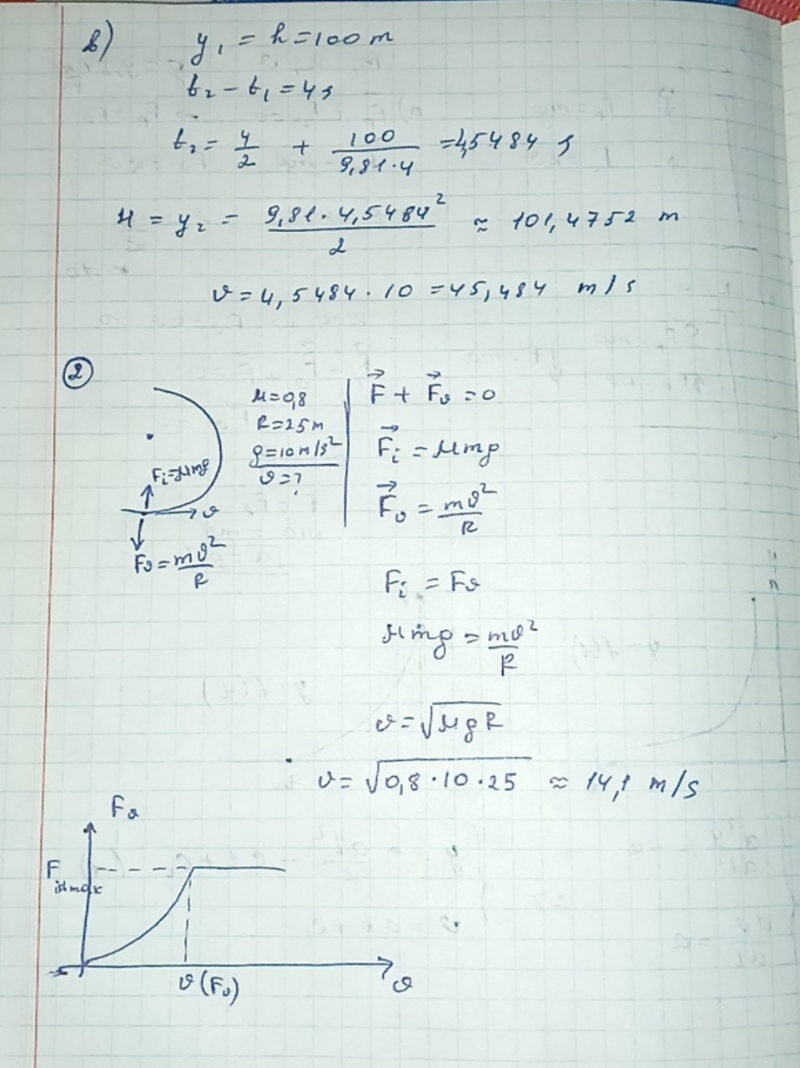 b) y₁ = h = 100 m
t₂ - t₁ = 4 s
t₂ = 4/2 + 100/(9,81·4) = 4,5484 s
H = y₂ = (9,81·4,5484²)/2 ≈ 101,4752 m
v = 4,5484·10 = 45,484 m/s
②
μ=0,8
R=25m
g=10m/s²
v=?
Fᵢ=μmg
v
Fv=mv²/R
F⃗ + F⃗v = 0
F⃗ᵢ = μmg
F⃗v = mv²/R
Fᵢ = Fv
μmg = mv²/R
v = √(μgR)
v = √(0,8·10·25) ≈ 14,1 m/s
Fv
v(Fv)
v